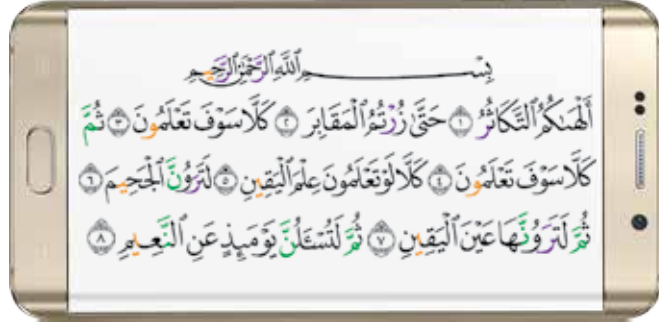 بِسْمِ ٱللَّهِ ٱلرَّحْمَٰنِ ٱلرَّحِيمِ
أَلْهَىٰكُمُ ٱلتَّكَاثُرُ ١ حَتَّىٰ زُرْتُمُ ٱلْمَقَابِرَ ٢ كَلَّا سَوْفَ تَعْلَمُونَ ٣ ثُمَّ
كَلَّا سَوْفَ تَعْلَمُونَ ٤ كَلَّا لَوْ تَعْلَمُونَ عِلْمَ ٱلْيَقِينِ ٥ لَتَرَوُنَّ ٱلْجَحِيمَ ٦
ثُمَّ لَتَرَوُنَّهَا عَيْنَ ٱلْيَقِينِ ٧ ثُمَّ لَتُسْـَٔلُنَّ يَوْمَئِذٍ عَنِ ٱلنَّعِيمِ ٨